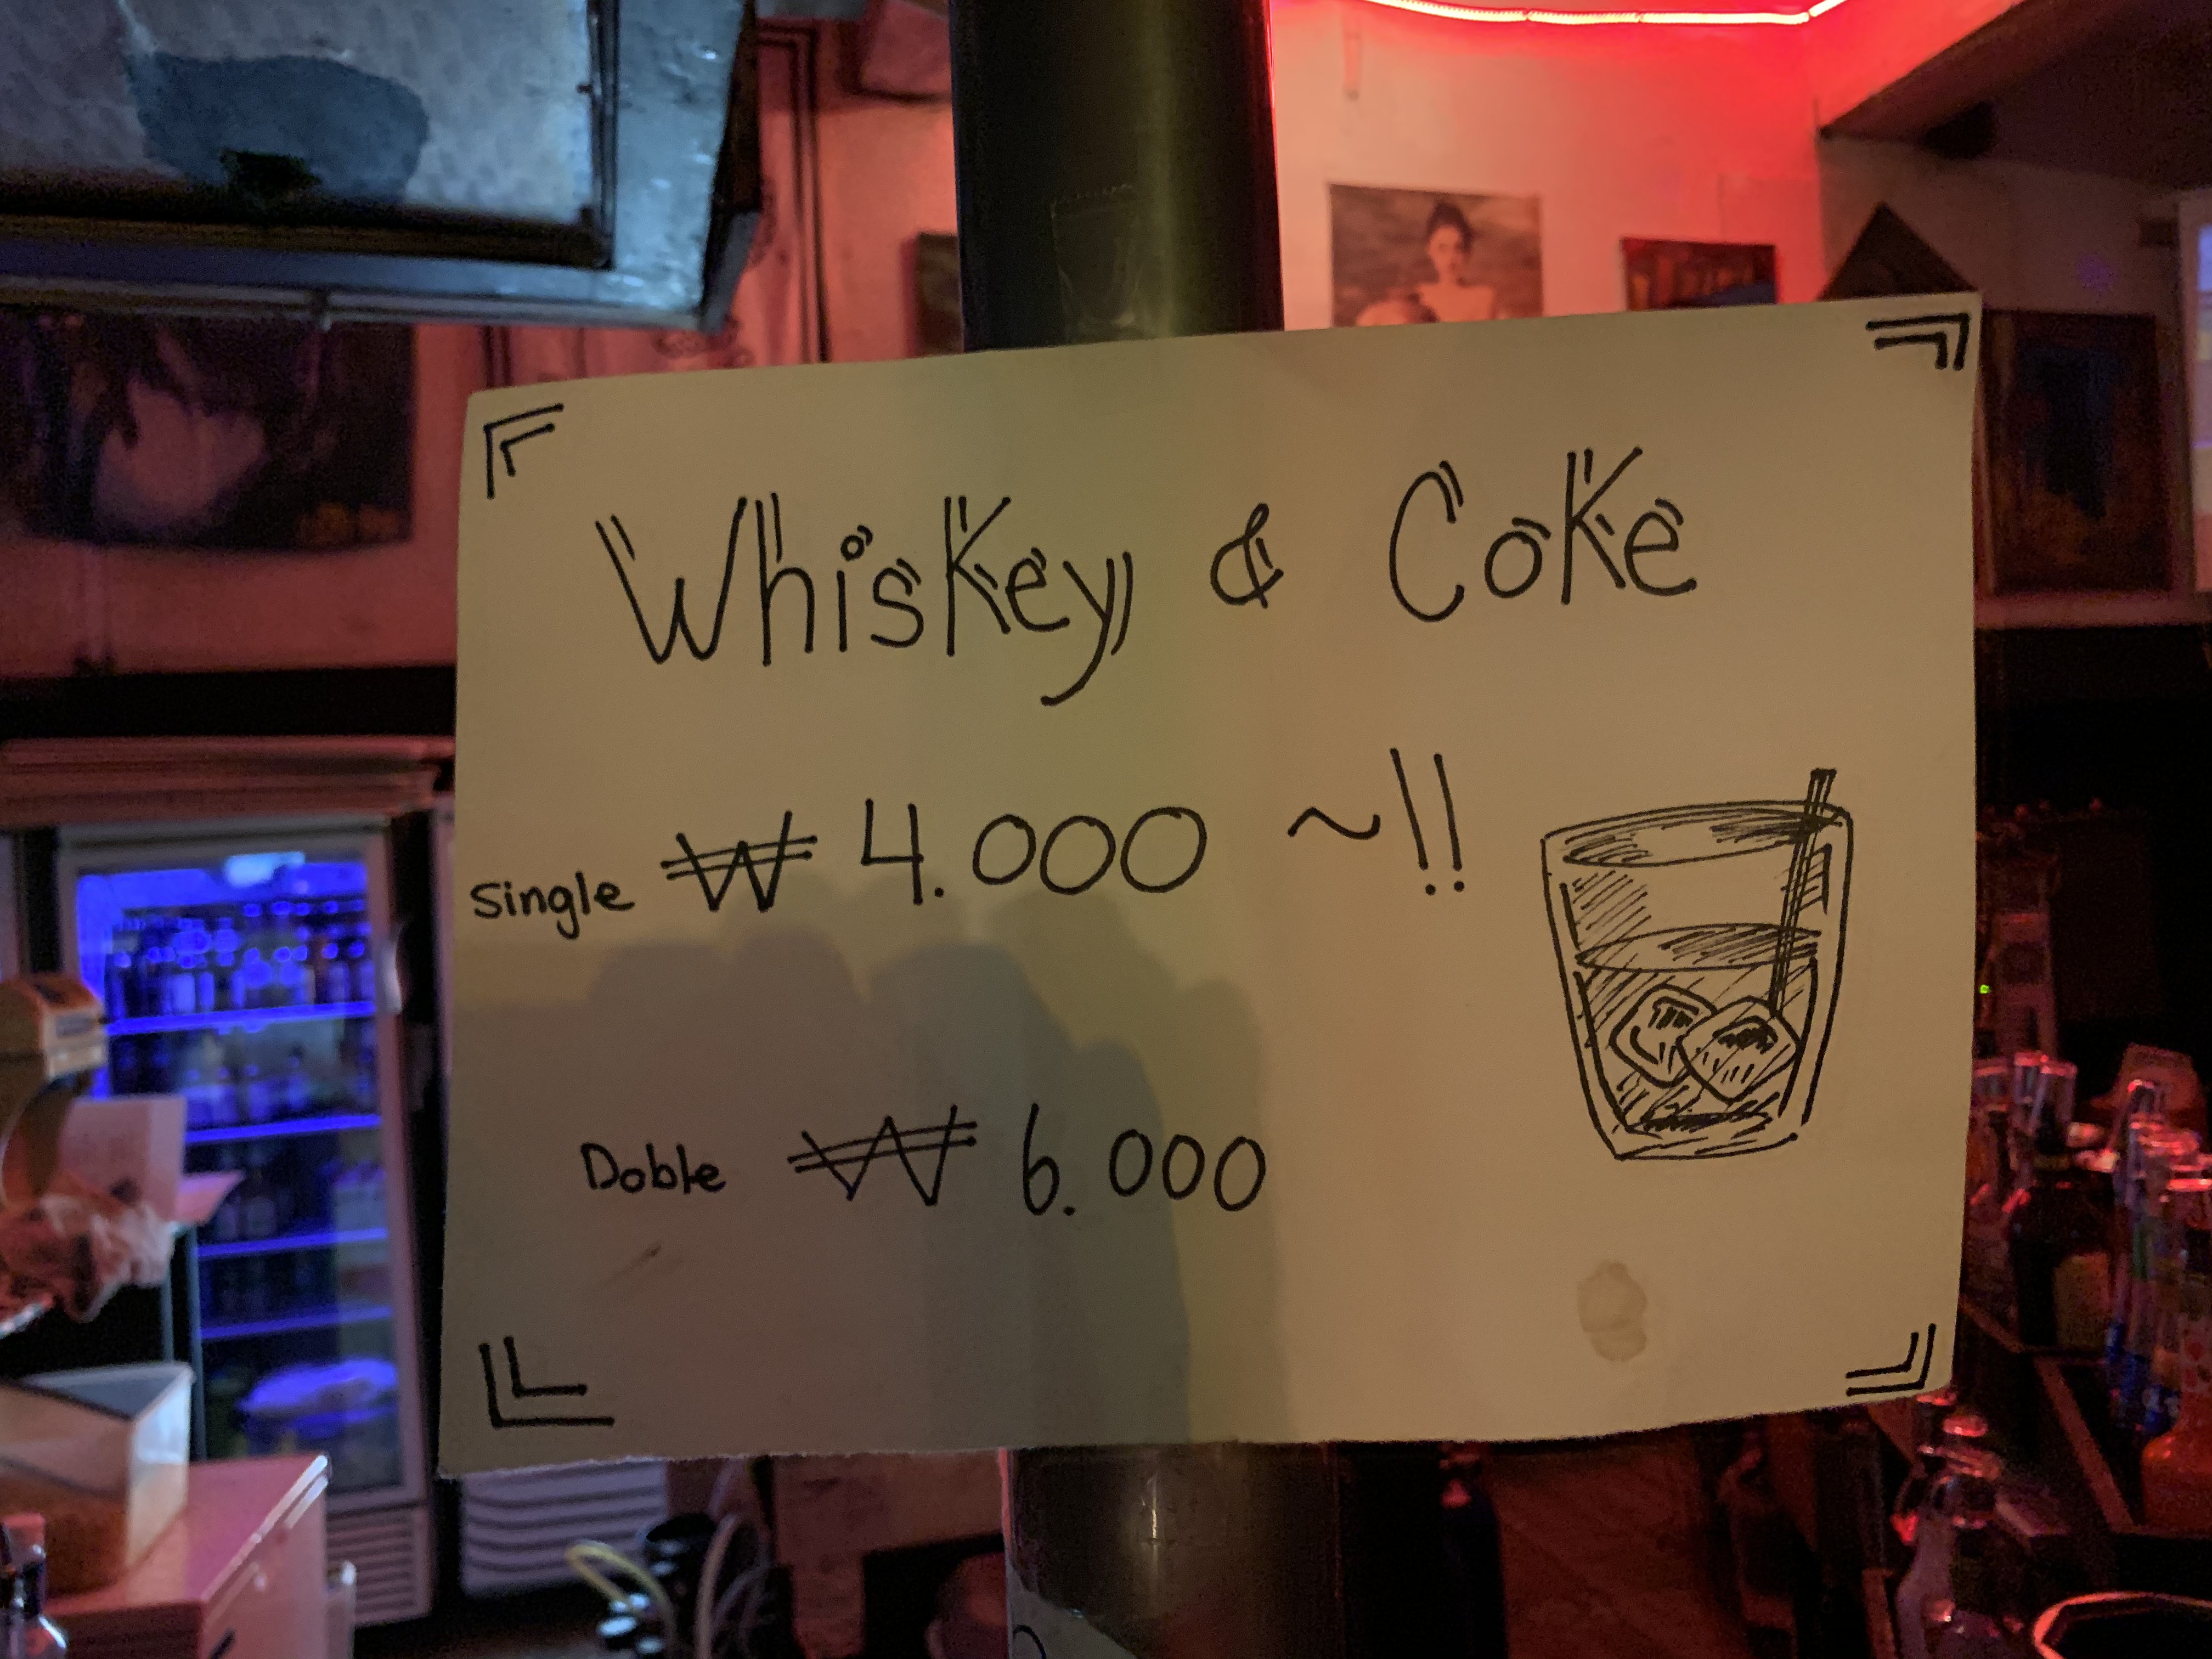 Whiskey & Coke
Single ₩ 4.000 ~!!
Doble ₩ 6.000